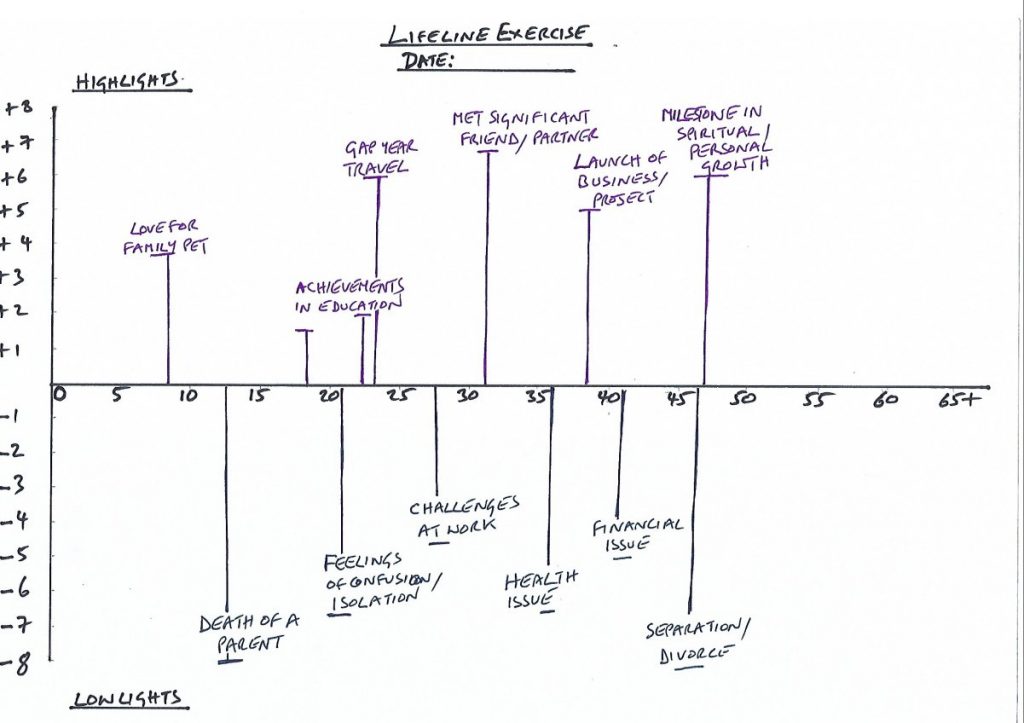 LIFELINE EXERCISE
DATE:
HIGHLIGHTS.
+8
+7
+6
+5
+4
+3
+2
+1
LOVE FOR
FAMILY PET
ACHIEVEMENTS
IN EDUCATION
GAP YEAR
TRAVEL
MET SIGNIFICANT
FRIEND/PARTNER
LAUNCH OF
BUSINESS/
PROJECT
MILESTONE IN
SPIRITUAL/
PERSONAL
GROWTH
0 5 10 15 20 25 30 35 40 45 50 55 60 65+
-1
-2
-3
-4
-5
-6
-7
-8
DEATH OF A
PARENT
FEELINGS
OF CONFUSION/
ISOLATION
CHALLENGES
AT WORK
HEALTH
ISSUE
FINANCIAL
ISSUE
SEPARATION/
DIVORCE
LOWLIGHTS